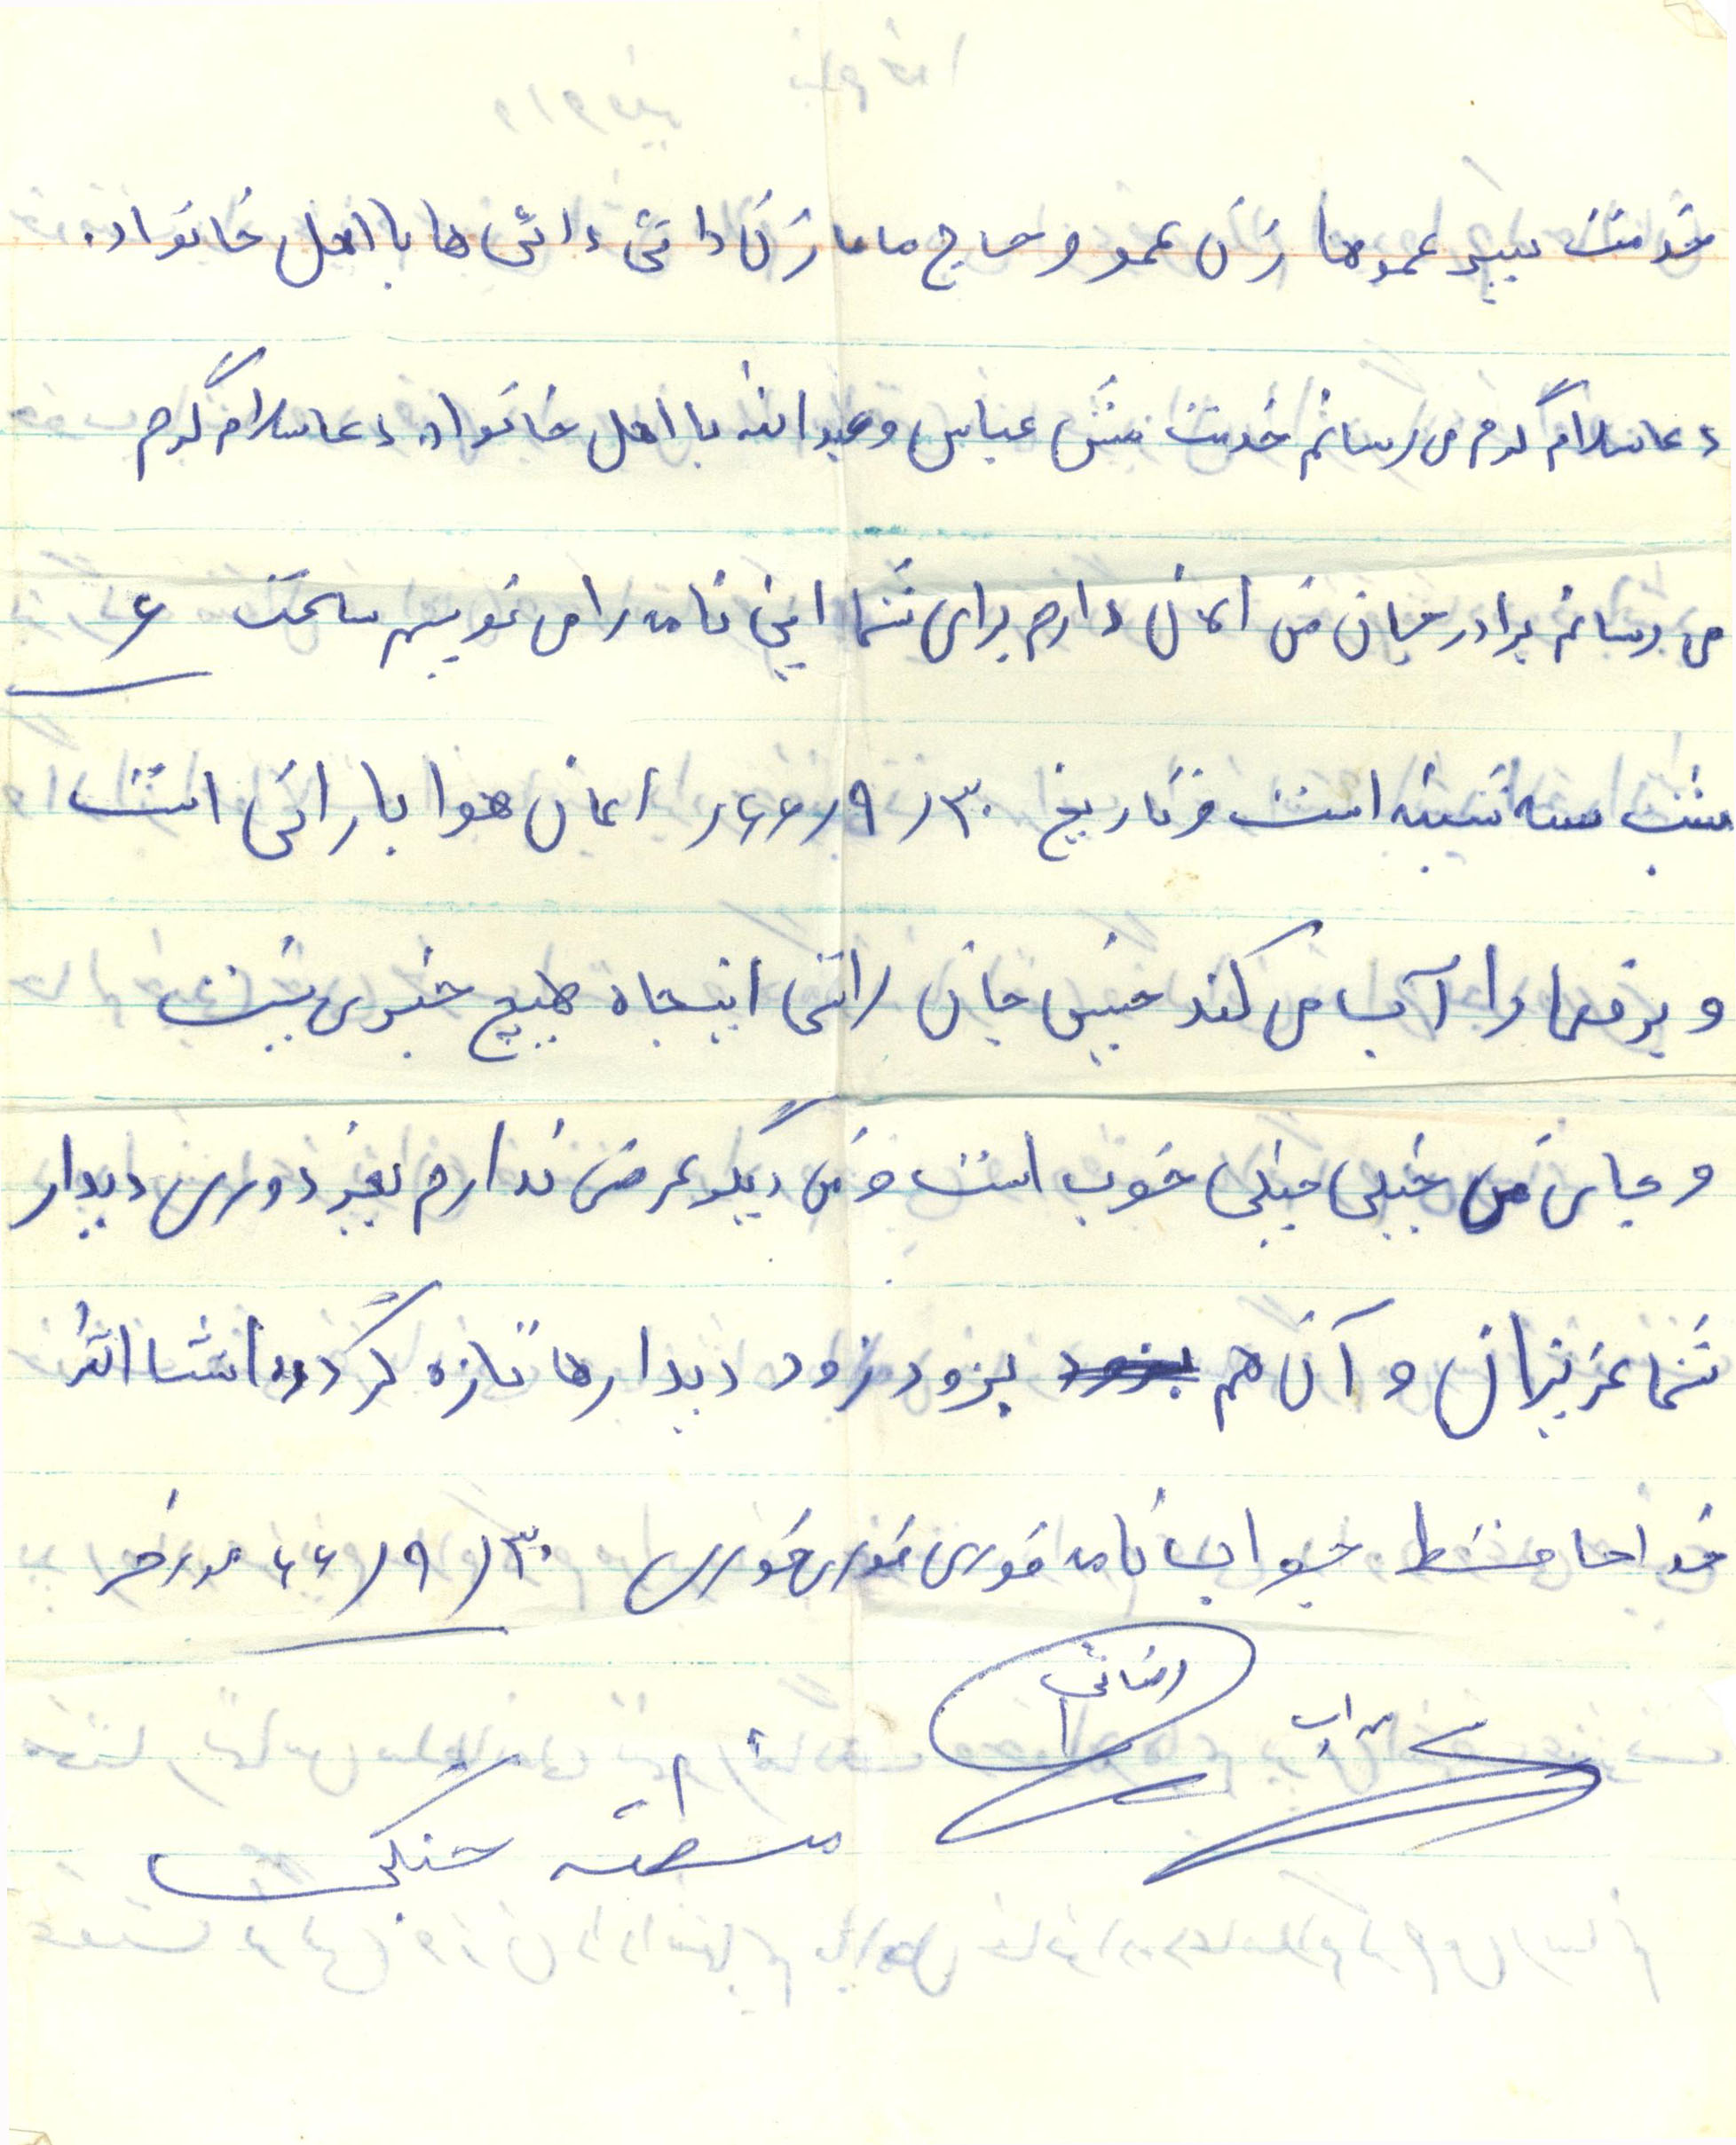 خدمت پسر عموها زن عمو و حاج ماما زن دائی دائی ها با اهل خانواده
دعا سلام گرم می رسانم خدمت مش عباس و عبداله با اهل خانواده دعا سلام گرم
می رسانم برادر جان من الان دارم برای شما این نامه را می نویسم ساعت ۶
شب سه شنبه است در تاریخ ۳۰/۹/۶۶ الان هوا بارانی است
و برفها را آب می کند حبیب جان راستی اینجاه هیچ خبری نیست
و جای من خیلی خیلی خوب است من دیگر عرضی ندارم بغیر دوری دیدار
شما عزیزان و آن هم بزود زود دیدارها تازه گردد انشا الله
خداحافظ جواب نامه فوری فوری فوری ۳۰/۹/۶۶ مورخ
امضائی
منطقه جنگی